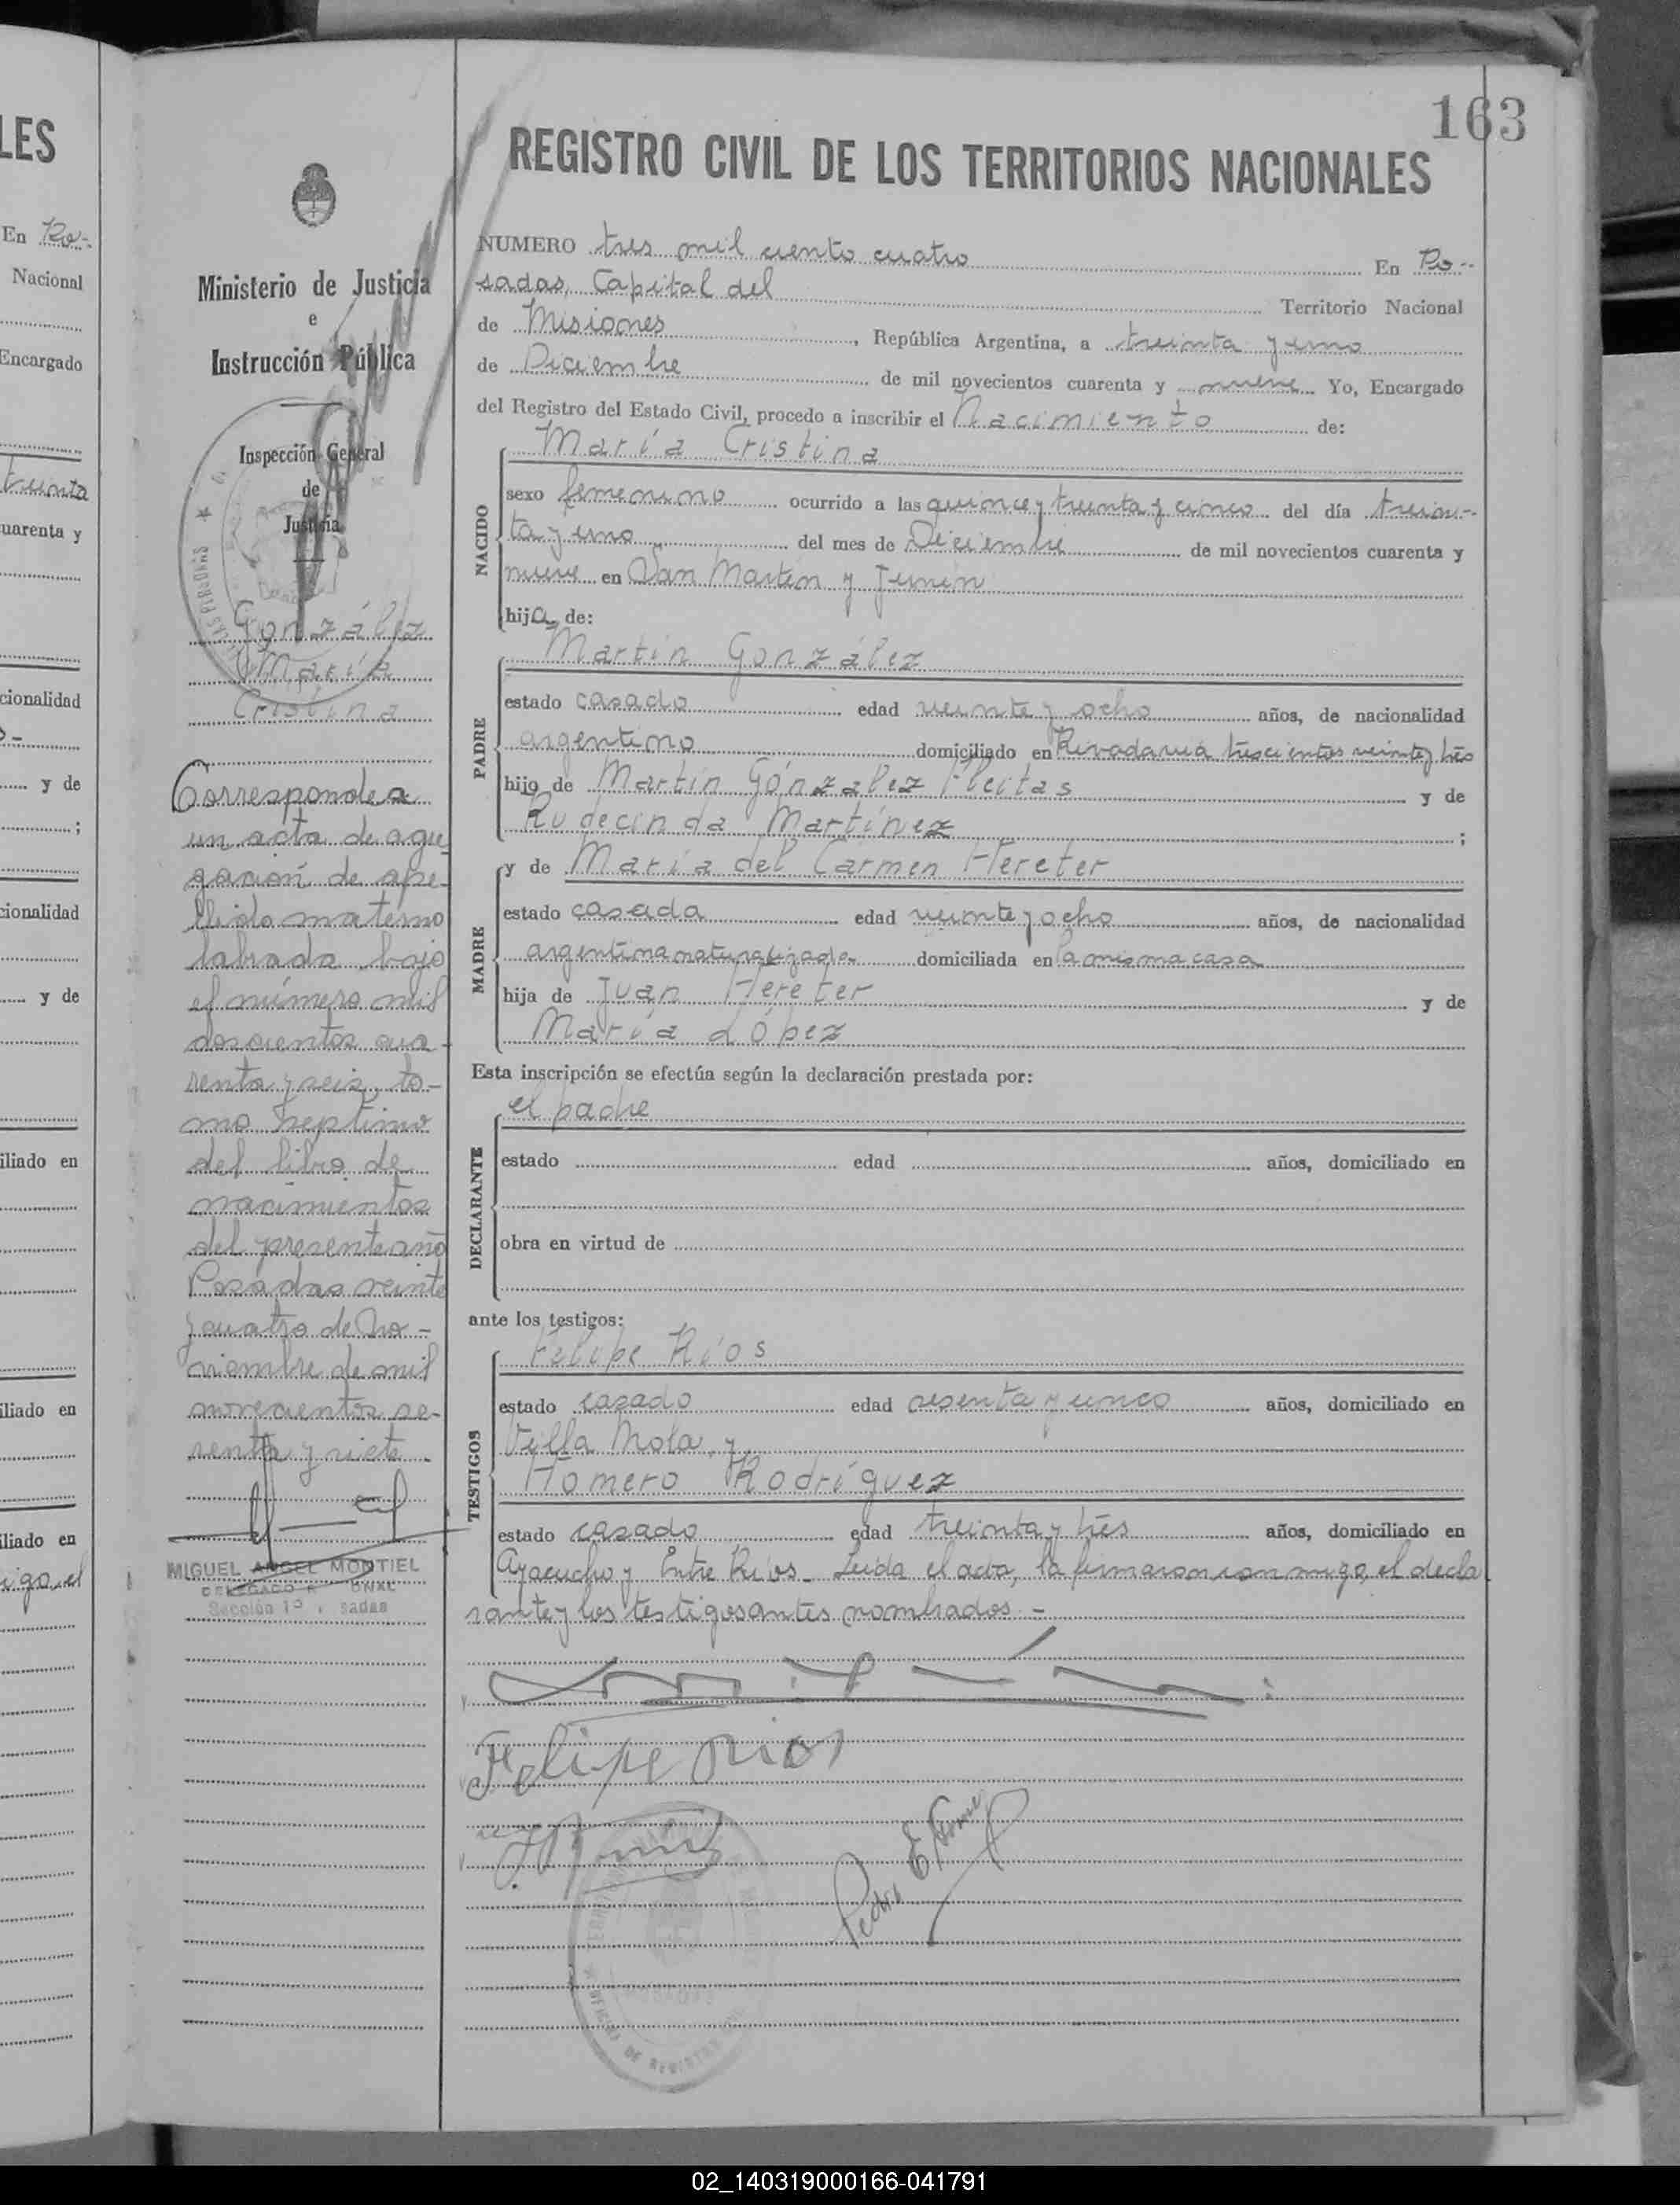 LES
En Po-
Nacional
Encargado
treinta
uarenta y
cionalidad
y de
;
cionalidad
y de
iliado en
iliado en
iliado en
igo, el
163
REGISTRO CIVIL DE LOS TERRITORIOS NACIONALES
Ministerio de Justicia
e
Instrucción Pública
Inspección General
de
Justicia
González
María
Cristina
Corresponde a
un acta de agre-
gación de ape-
llido materno
labrada bajo
el número mil
doscientos cua-
renta y seis, to-
mo septimo
del libro de
nacimientos
del presente año
Posadas veinte
y cuatro de No-
viembre de mil
novecientos se-
senta y siete
MIGUEL ANGEL MONTIEL
Sección 1º sadas
NUMERO tres mil ciento cuatro En Po-
sadas, Capital del Territorio Nacional
de Misiones, República Argentina, a treinta y uno
de Diciembre de mil novecientos cuarenta y nueve Yo, Encargado
del Registro del Estado Civil, procedo a inscribir el Nacimiento de:
NACIDO
María Cristina
sexo femenino ocurrido a las quince y treinta y cinco del día trein-
ta y uno del mes de Diciembre de mil novecientos cuarenta y
nueve en San Martín y Junín
hija de:
PADRE
Martín González
estado casado edad veinte y ocho años, de nacionalidad
argentino domiciliado en Rivadavia trescientos veinte y tres
hijo de Martín Gónzalez Fleitas y de
Rudecinda Martínez ;
MADRE
y de María del Carmen Hereter
estado casada edad veinte y ocho años, de nacionalidad
argentina naturalizada domiciliada en la misma casa
hija de Juan Hereter y de
María López
Esta inscripción se efectúa según la declaración prestada por:
DECLARANTE
el padre
estado edad años, domiciliado en
obra en virtud de
ante los testigos:
TESTIGOS
Felipe Ríos
estado casado edad sesenta y cinco años, domiciliado en
Villa Mola, y
Homero Rodríguez
estado casado edad treinta y tres años, domiciliado en
Ayacucho y Entre Ríos. Leida el acta, la firmaron conmigo, el decla
rante y los testigos antes nombrados. -
Felipe Rios
Pedro E.
02_140319000166-041791